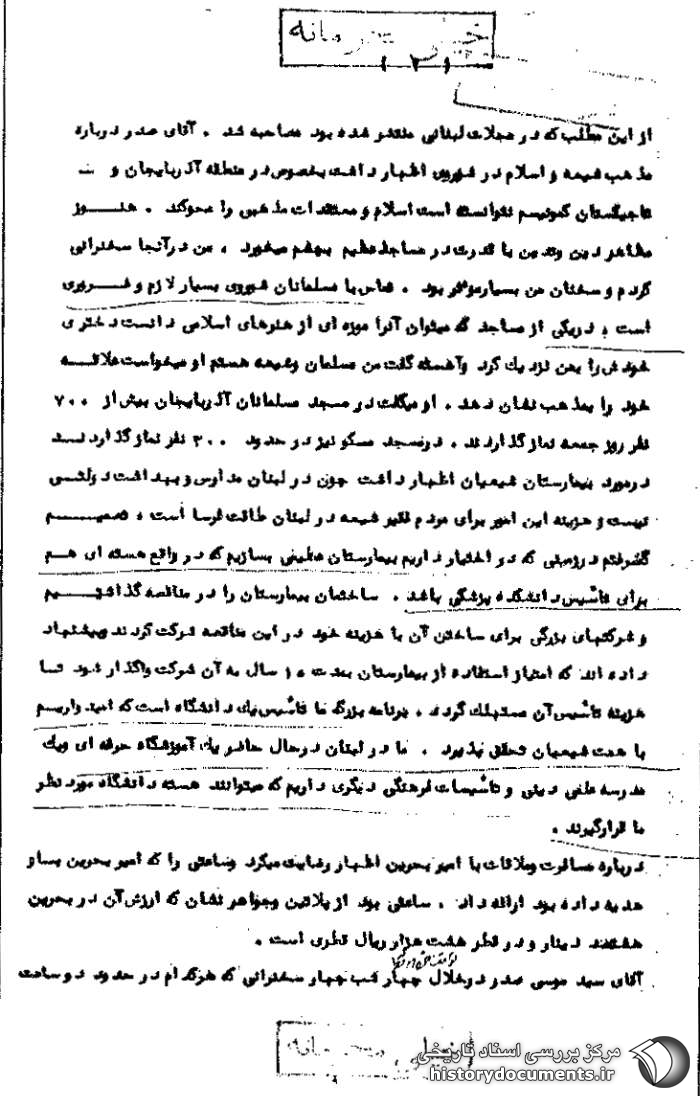 خیلی محرمانه
(۲)
از این مطلب که در مجلات لبنانی منتشر شده بود مصاحبه شد . آقای صدر درباره
مذهب شیعه و اسلام در شوروی اظهار داشت بخصوص در منطقه آذربایجان و
تاجیکستان کمونیسم نتوانسته است اسلام و معتقدات مذهبی را محوکند . هنوز
مظاهر دین وتدین با قدرت در مساجدعظیم بچشم میخورد . من در آنجا سخنرانی
کردم و سخنان من بسیارموثر بود . تماس با مسلمانان شوروی بسیار لازم و ضروری
است ، دریکی از مساجد که میتوان آنرا موزه ای از هنرهای اسلامی دانست دختری
خودش را بمن نزدیك کرد وآهسته گفت من مسلمان وشیعه هستم او میخواست علاقه
خود را بمذهب نشان دهد . او میگفت در مسجد مسلمانان آذربایجان بیش از ۷۰۰
نفر روز جمعه نماز گذاردند . درمسجد مسکو نیز در حدود ۳۰۰ نفر نماز گذاردند
درمورد بیمارستان شیعیان اظهار داشت چون در لبنان مدارس و بهداشت دولتی
نیست و هزینه این امور برای مردم فقیر شیعه در لبنان طاقت فرسا است ، تصمیم
گرفتم درزمینی که در اختیار داریم بیمارستان عظیمی بسازیم که در واقع هسته ای هم
برای تأسیس دانشکده پزشکی باشد . ساختمان بیمارستان را در مناقصه گذاشتیم
و شرکتهای بزرگی برای ساختن آن با هزینه خود در این مناقصه شرکت کردند وپیشنهاد
داده اند که امتیاز استفاده از بیمارستان بمدت ۱۰ سال به آن شرکت واگذار شود تا
هزینه تأسیس آن مستهلك گردد ، برنامه بزرگ ما تأسیس یك دانشگاه است که امید واریم
با همت شیعیان تحقق پذیرد . ما در لبنان درحال حاضر یك آموزشگاه حرفه ای ویك
مدرسه علمی دینی و تأسیسات فرهنگی دیگری داریم که میتوانند هسته دانشگاه مورد نظر
ما قرارگیرند .
درباره مسافرت وملاقات با امیر بحرین اظهار رضایت میکرد وساعتی را که امیر بحرین بساو
هدیه داده بود ارائه داد . ساعتی بود از پلاتین وجواهر نشان که ارزش آن در بحرین
هشتصد دینار و در قطر هشت هزار ریال قطری است .
آقای سید موسی صدر درخلال چهار شب چهار سخنرانی که هرکدام در حدود دو ساعت
خیلی محرمانه
مرکز بررسی اسناد تاریخی
historydocuments.ir